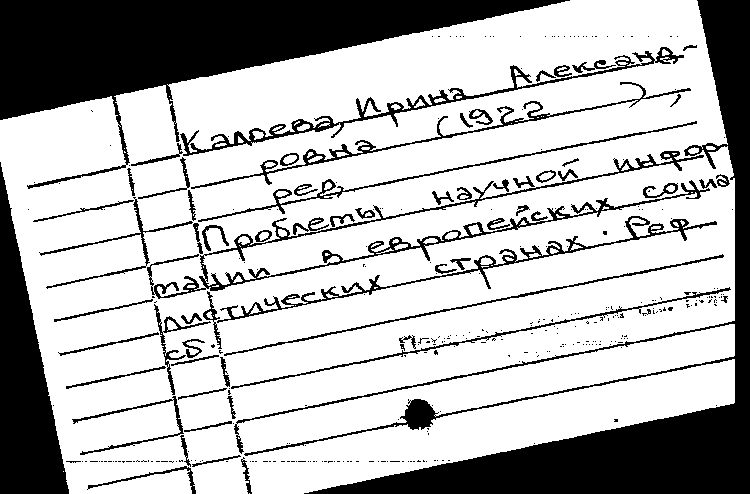 Калоева, Ирина Александ-
ровна (1922 ),
ред.
Проблемы научной инфор
мации в европейских социа-
листических странах. Реф.
сб.